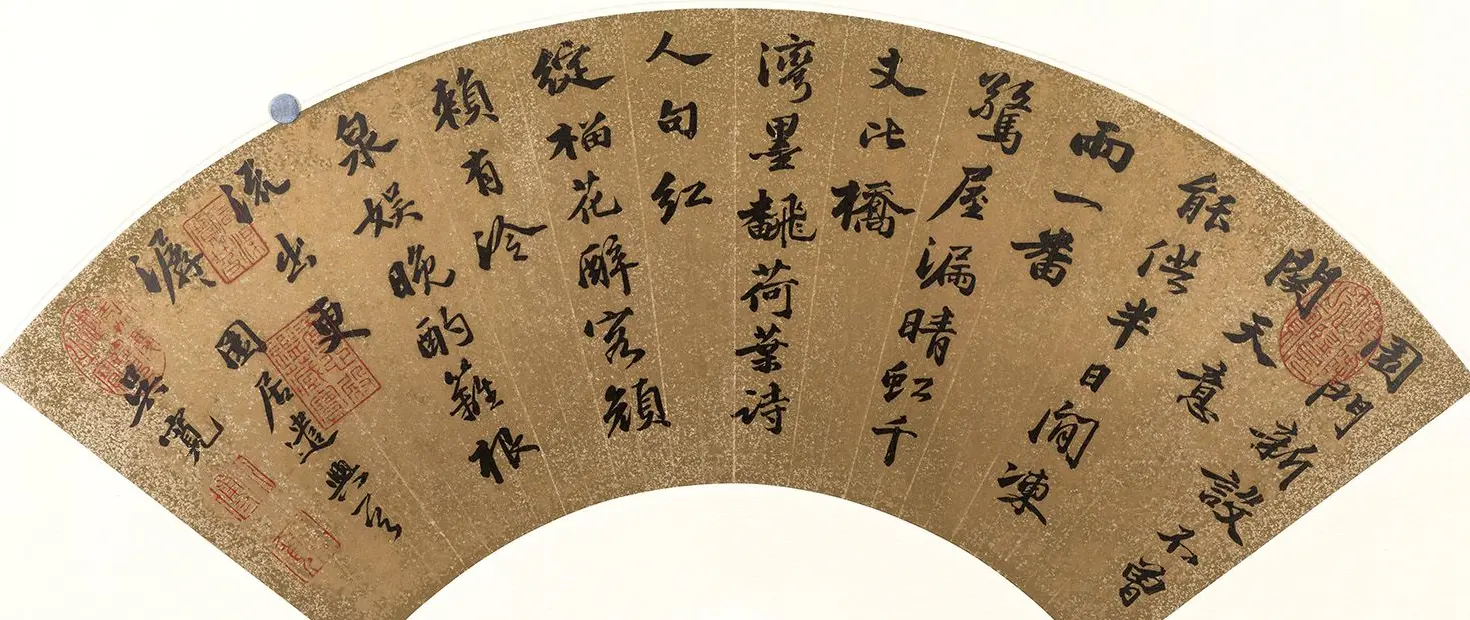 園門新設不曾
關天意
能供半日閒凍
雨一番
驚屋漏晴虹千
丈比橋
灣墨翻荷葉詩
人句紅
綻榴花醉客顏
賴有冷
泉娛晚酌籬根
流出更
潺園居遣興
吳寬